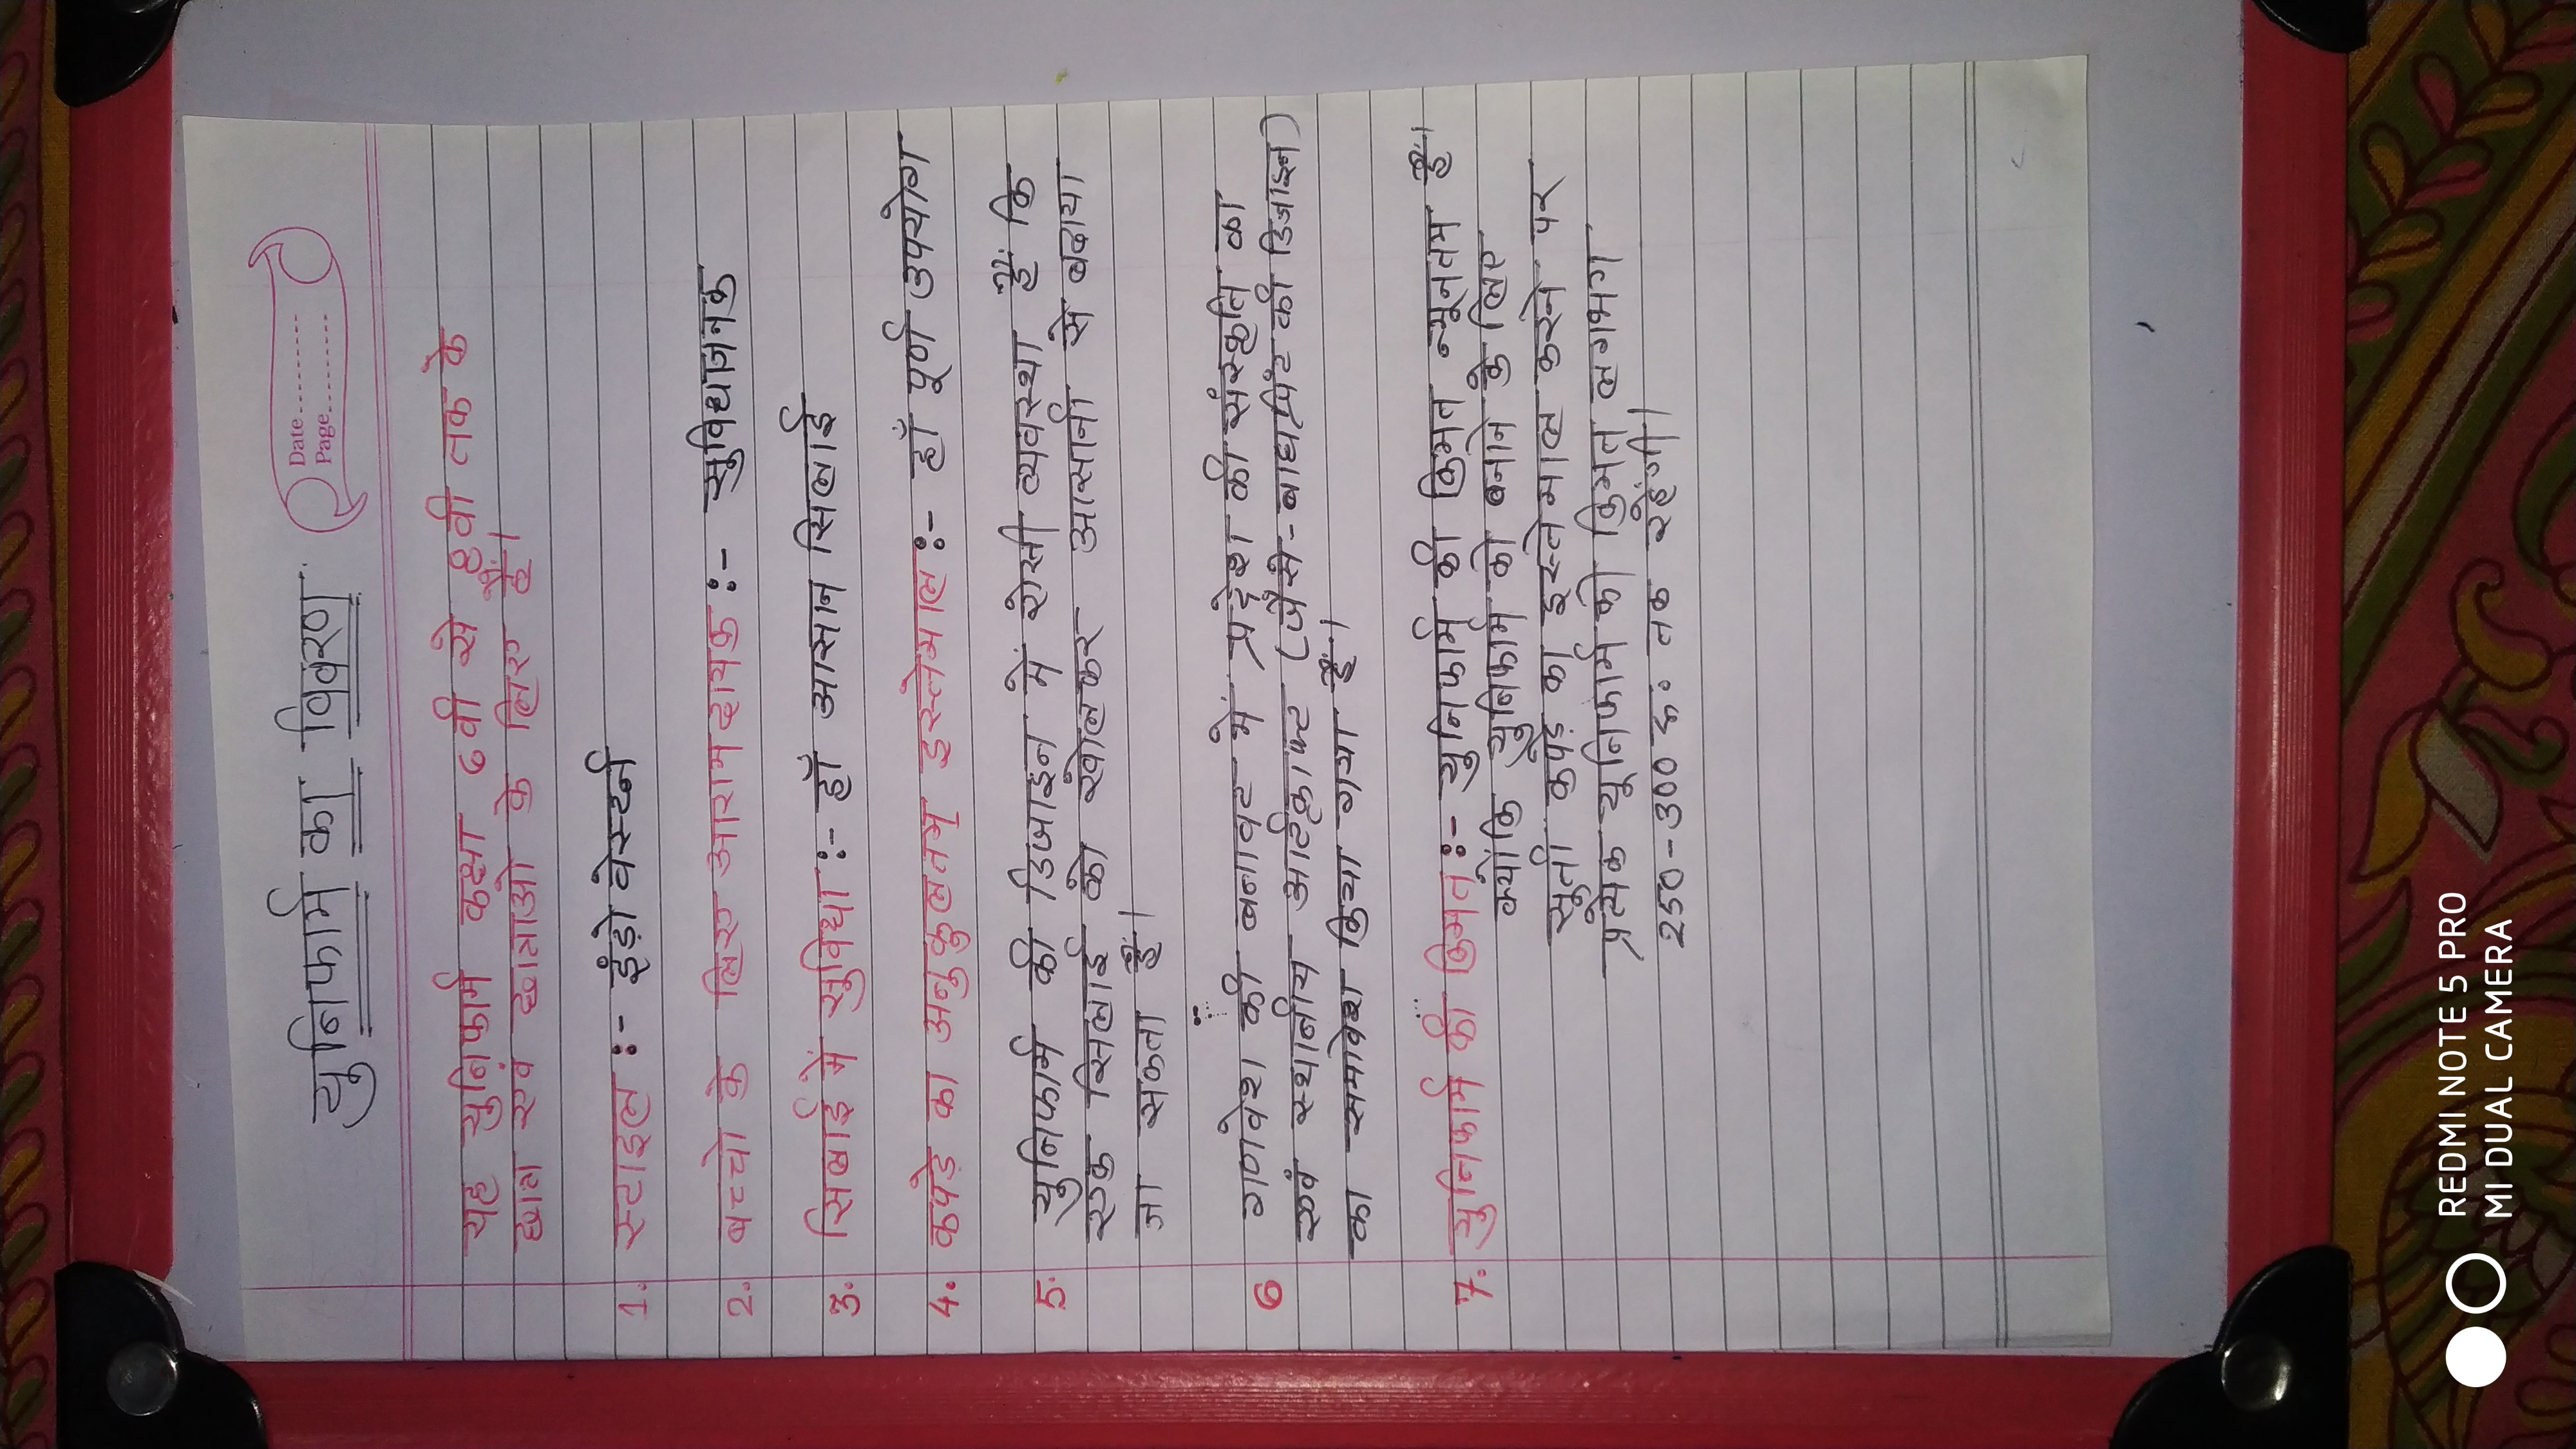 Date
Page
युनिफार्म का विवरण
यह युनिफार्म कक्षा 6वी से 8वी तक के
छात्र एवं छात्राओ के लिए हैं।
1. स्टाइल :- इंडो वेस्टर्न
2. बच्चो के लिए आरामदायक :- सुविधाजनक
3. सिलाई में सुविधा :- हाँ आसान सिलाई
4. कपड़े का अनुकुलतम् इस्तेमाल :- हाँ पूर्ण उपयोग
5. युनिफार्म की डिजाइन में ऐसी व्यवस्था हैं कि
एक सिलाई को खोलकर आसानी से बढाया
जा सकता हैं।
6 गणवेश की बनावट में प्रदेश की संस्कृति का
एवं स्थानीय आर्टक्राफ्ट (जैसे-बाघप्रिंट की डिजाइन)
का समावेश किया गया हैं।
7. युनिफार्म की किमत :- युनिफार्म की किमत न्यूनतम हैं।
क्योंकि युनिफार्म को बनाने के लिए
सुती कपड़े का इस्तेमाल करने पर
प्रत्येक यूनिफार्म की किमत लगभग
250-300 रू. तक रहेंगी।
REDMI NOTE 5 PRO
MI DUAL CAMERA